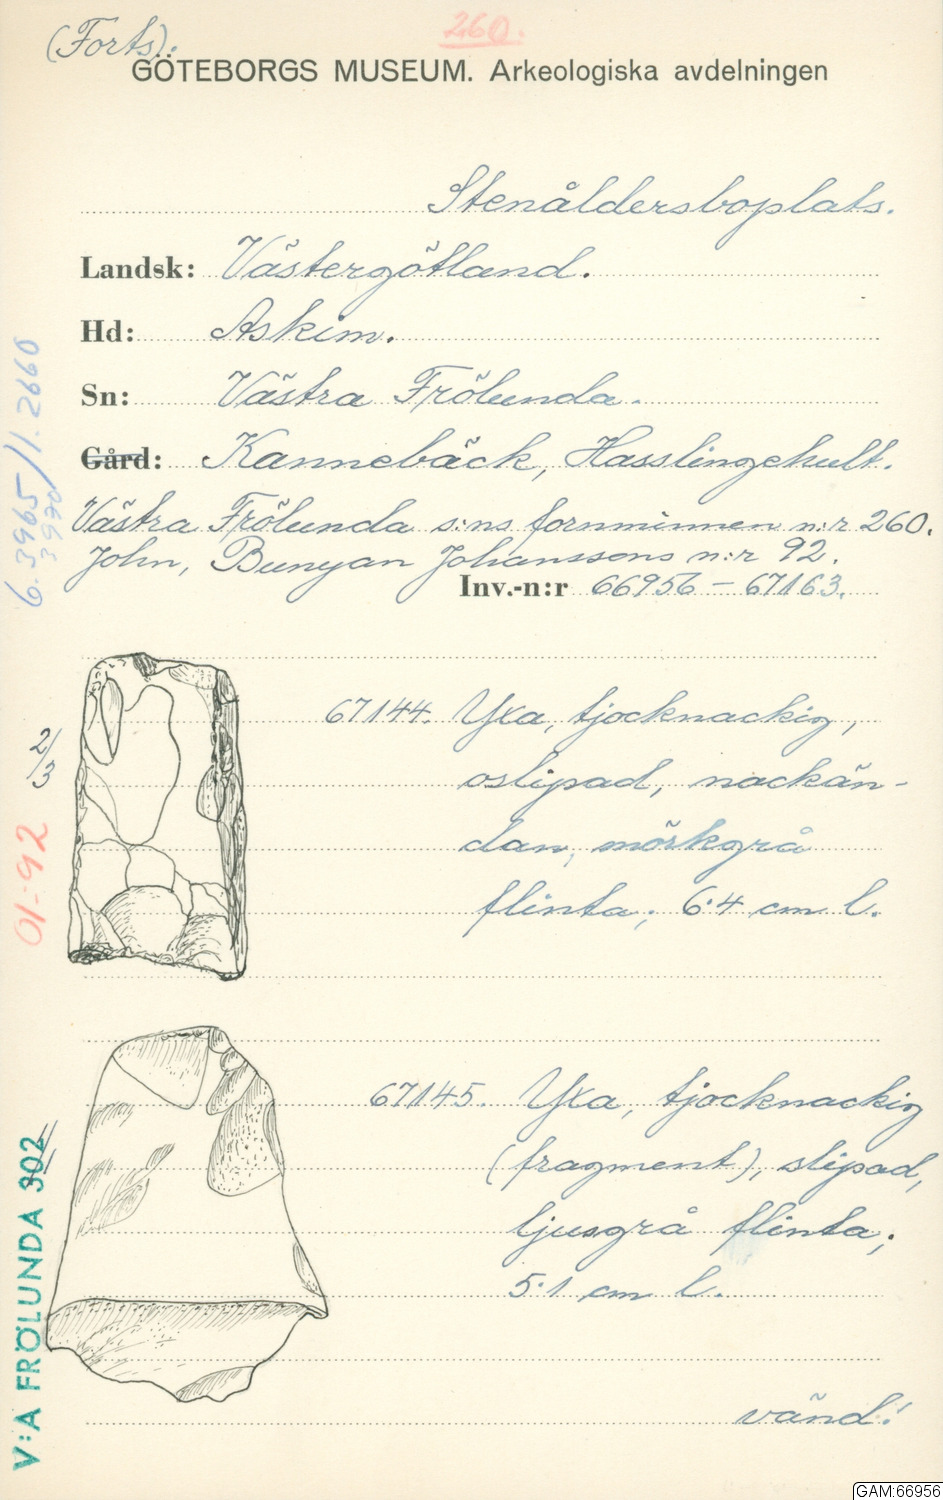 (Forts).
260.
GÖTEBORGS MUSEUM. Arkeologiska avdelningen
Stenåldersboplats.
Landsk: Västergötland.
Hd: Askim.
Sn: Västra Frölunda.
Gård: Kannebäck, Hasslingehult.
Västra Frölunda s:ns fornminnen n:r 260.
John, Bunyan Johanssons n:r 92.
Inv.-n:r 66956 – 67163.
67144. Yxa, tjocknackig,
oslipad, nackän-
dan, mörkgrå
flinta; 6.4 cm l.
2/3
67145. Yxa, tjocknackig
(fragment), slipad,
ljusgrå flinta;
5.1 cm l.
vänd!
6.3965/1.2660
3970
01-92
V:A FRÖLUNDA 302
GAM:66956